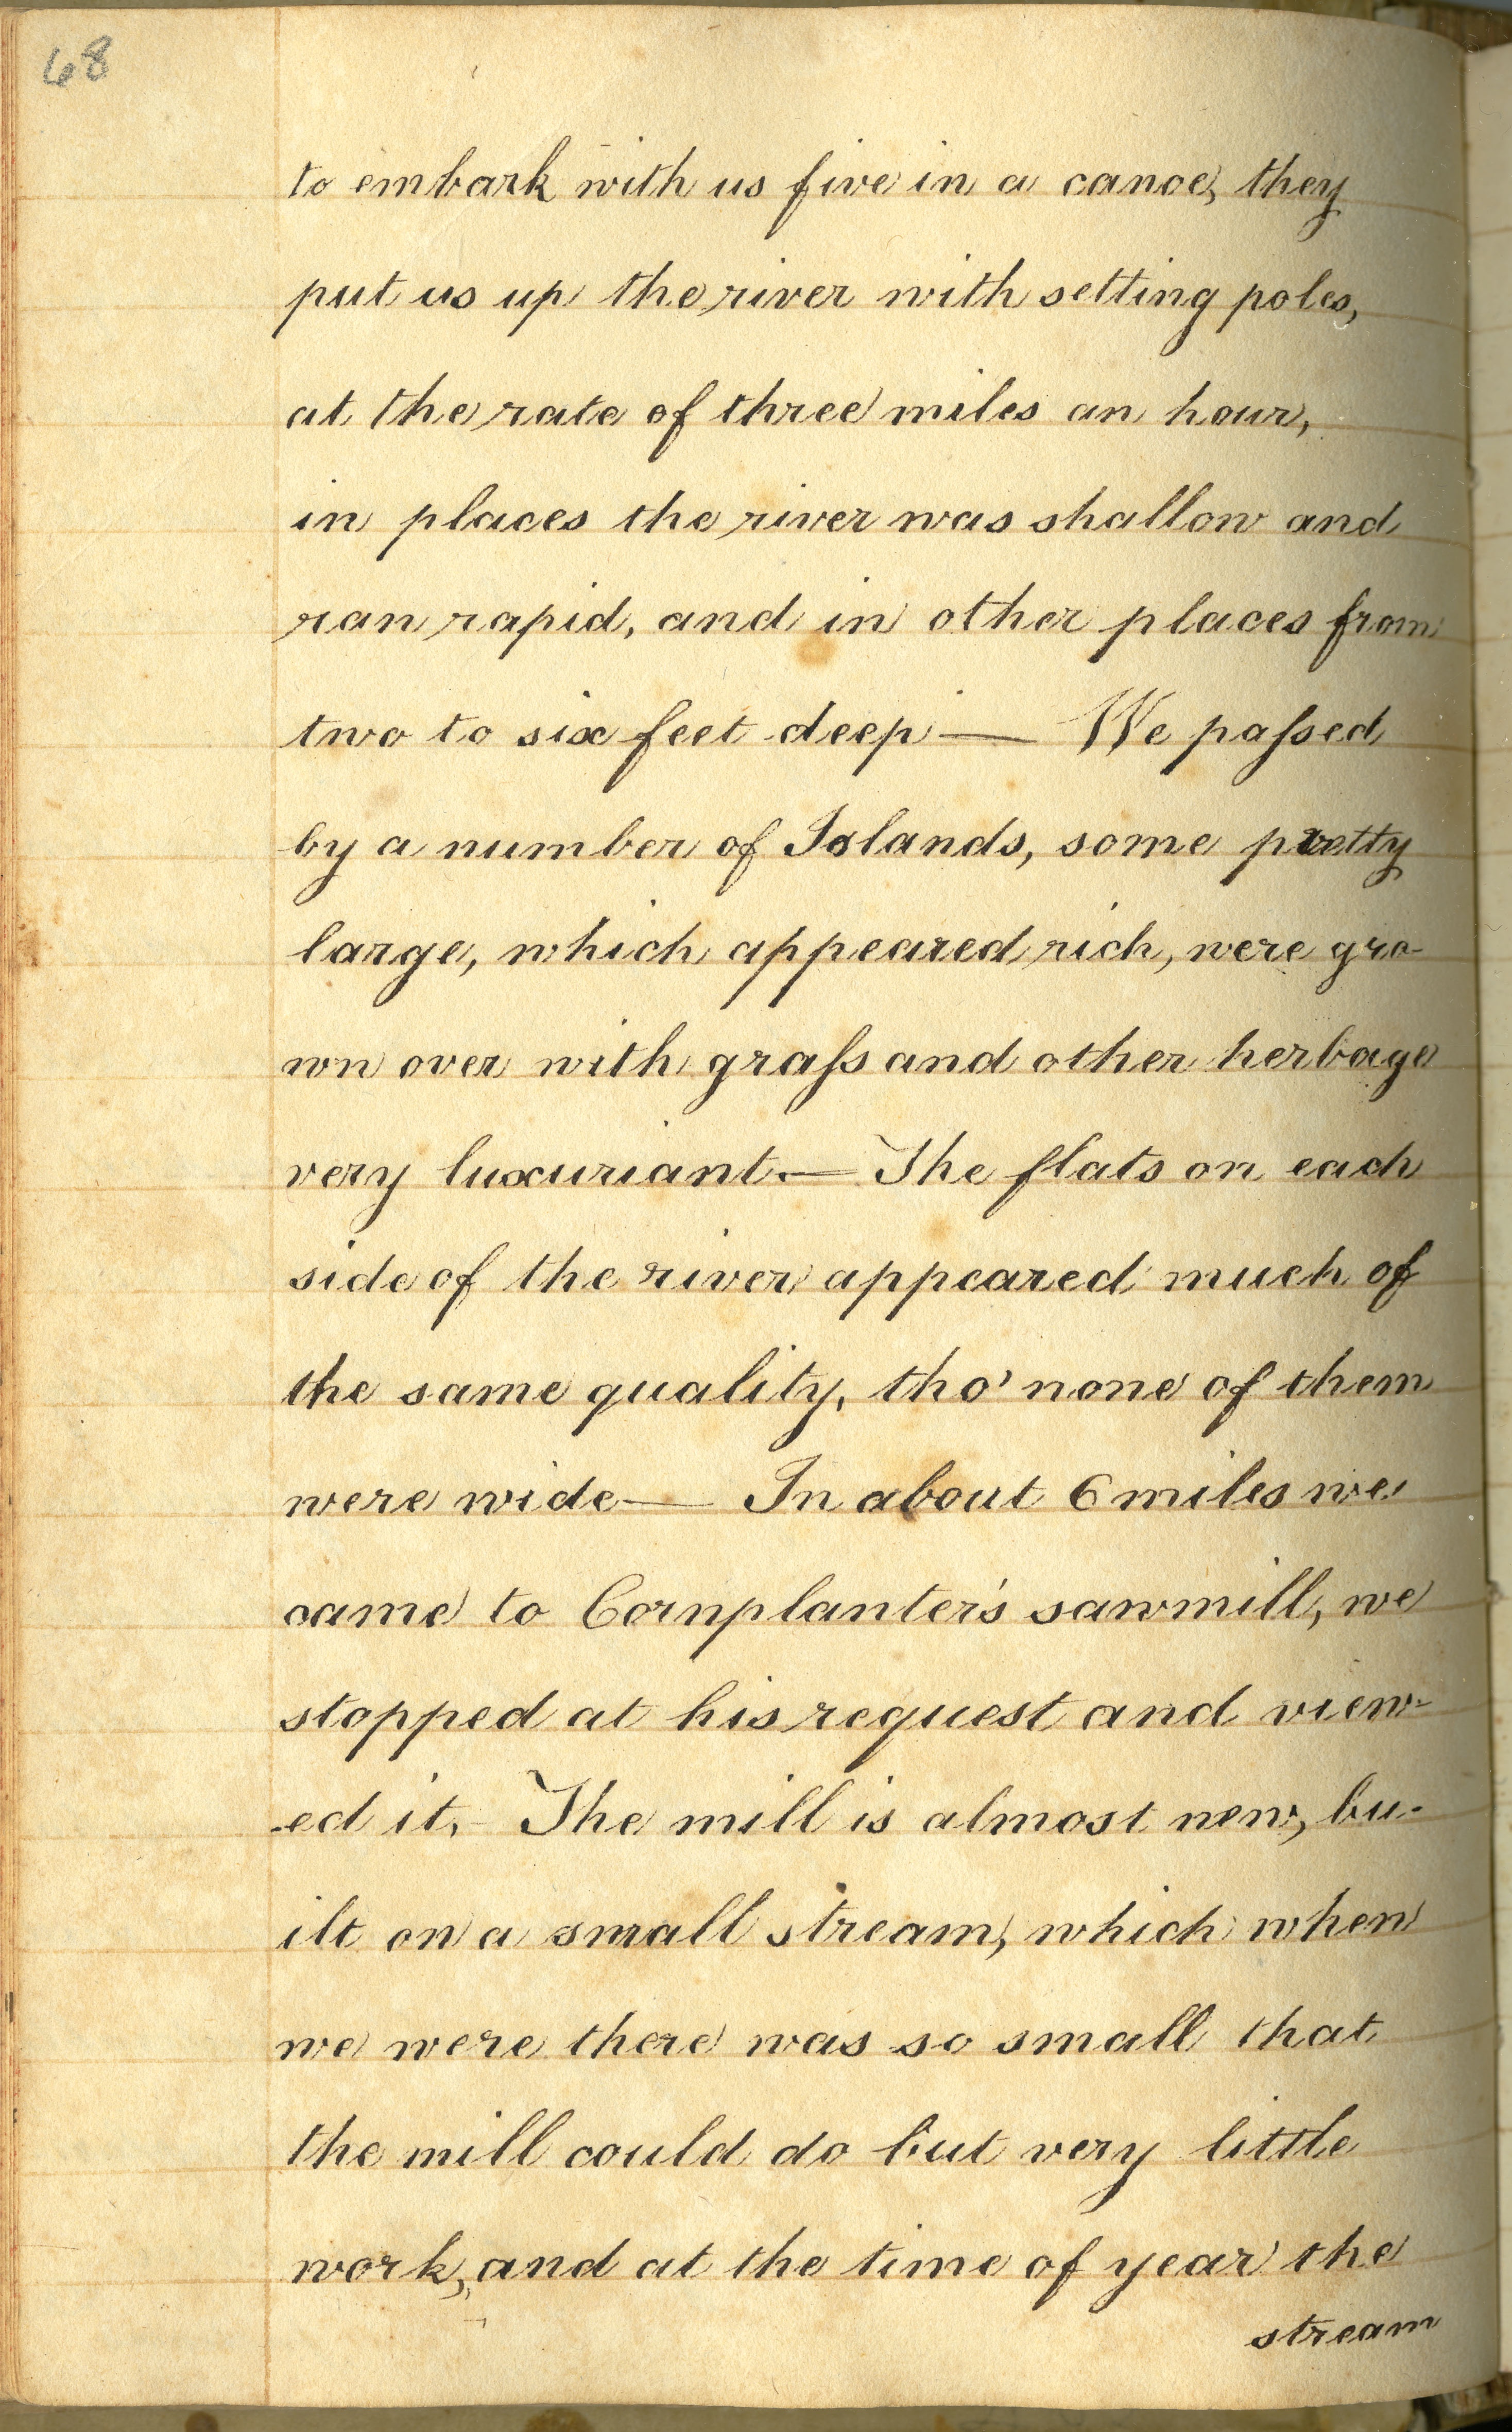 68
to embark with us five in a canoe, they
put us up the river with setting poles,
at the rate of three miles an hour,
in places the river was shallow and
ran rapid, and in other places from
two to six feet deep — We paſsed
by a number of Islands, some pretty
large, which appeared rich, were gro-
wn over with graſs and other herbage
very luxuriant. — The flats on each
side of the river appeared much of
the same quality, tho' none of them
were wide — In about 6 miles we
came to Cornplanter's sawmill, we
stopped at his request and view-
ed it. The mill is almost new, bu-
ilt on a small stream, which when
we were there was so small that
the mill could do but very little
work, and at the time of year the
stream